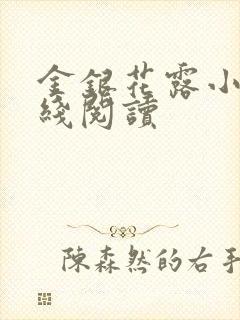 金銀花露小
綫閱讀
陳森然的右手